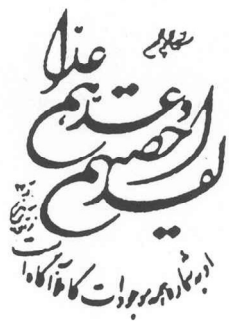 لقد احصیهم وعدهم عدّا
او به شماره همه موجودات کاملا آگاه است